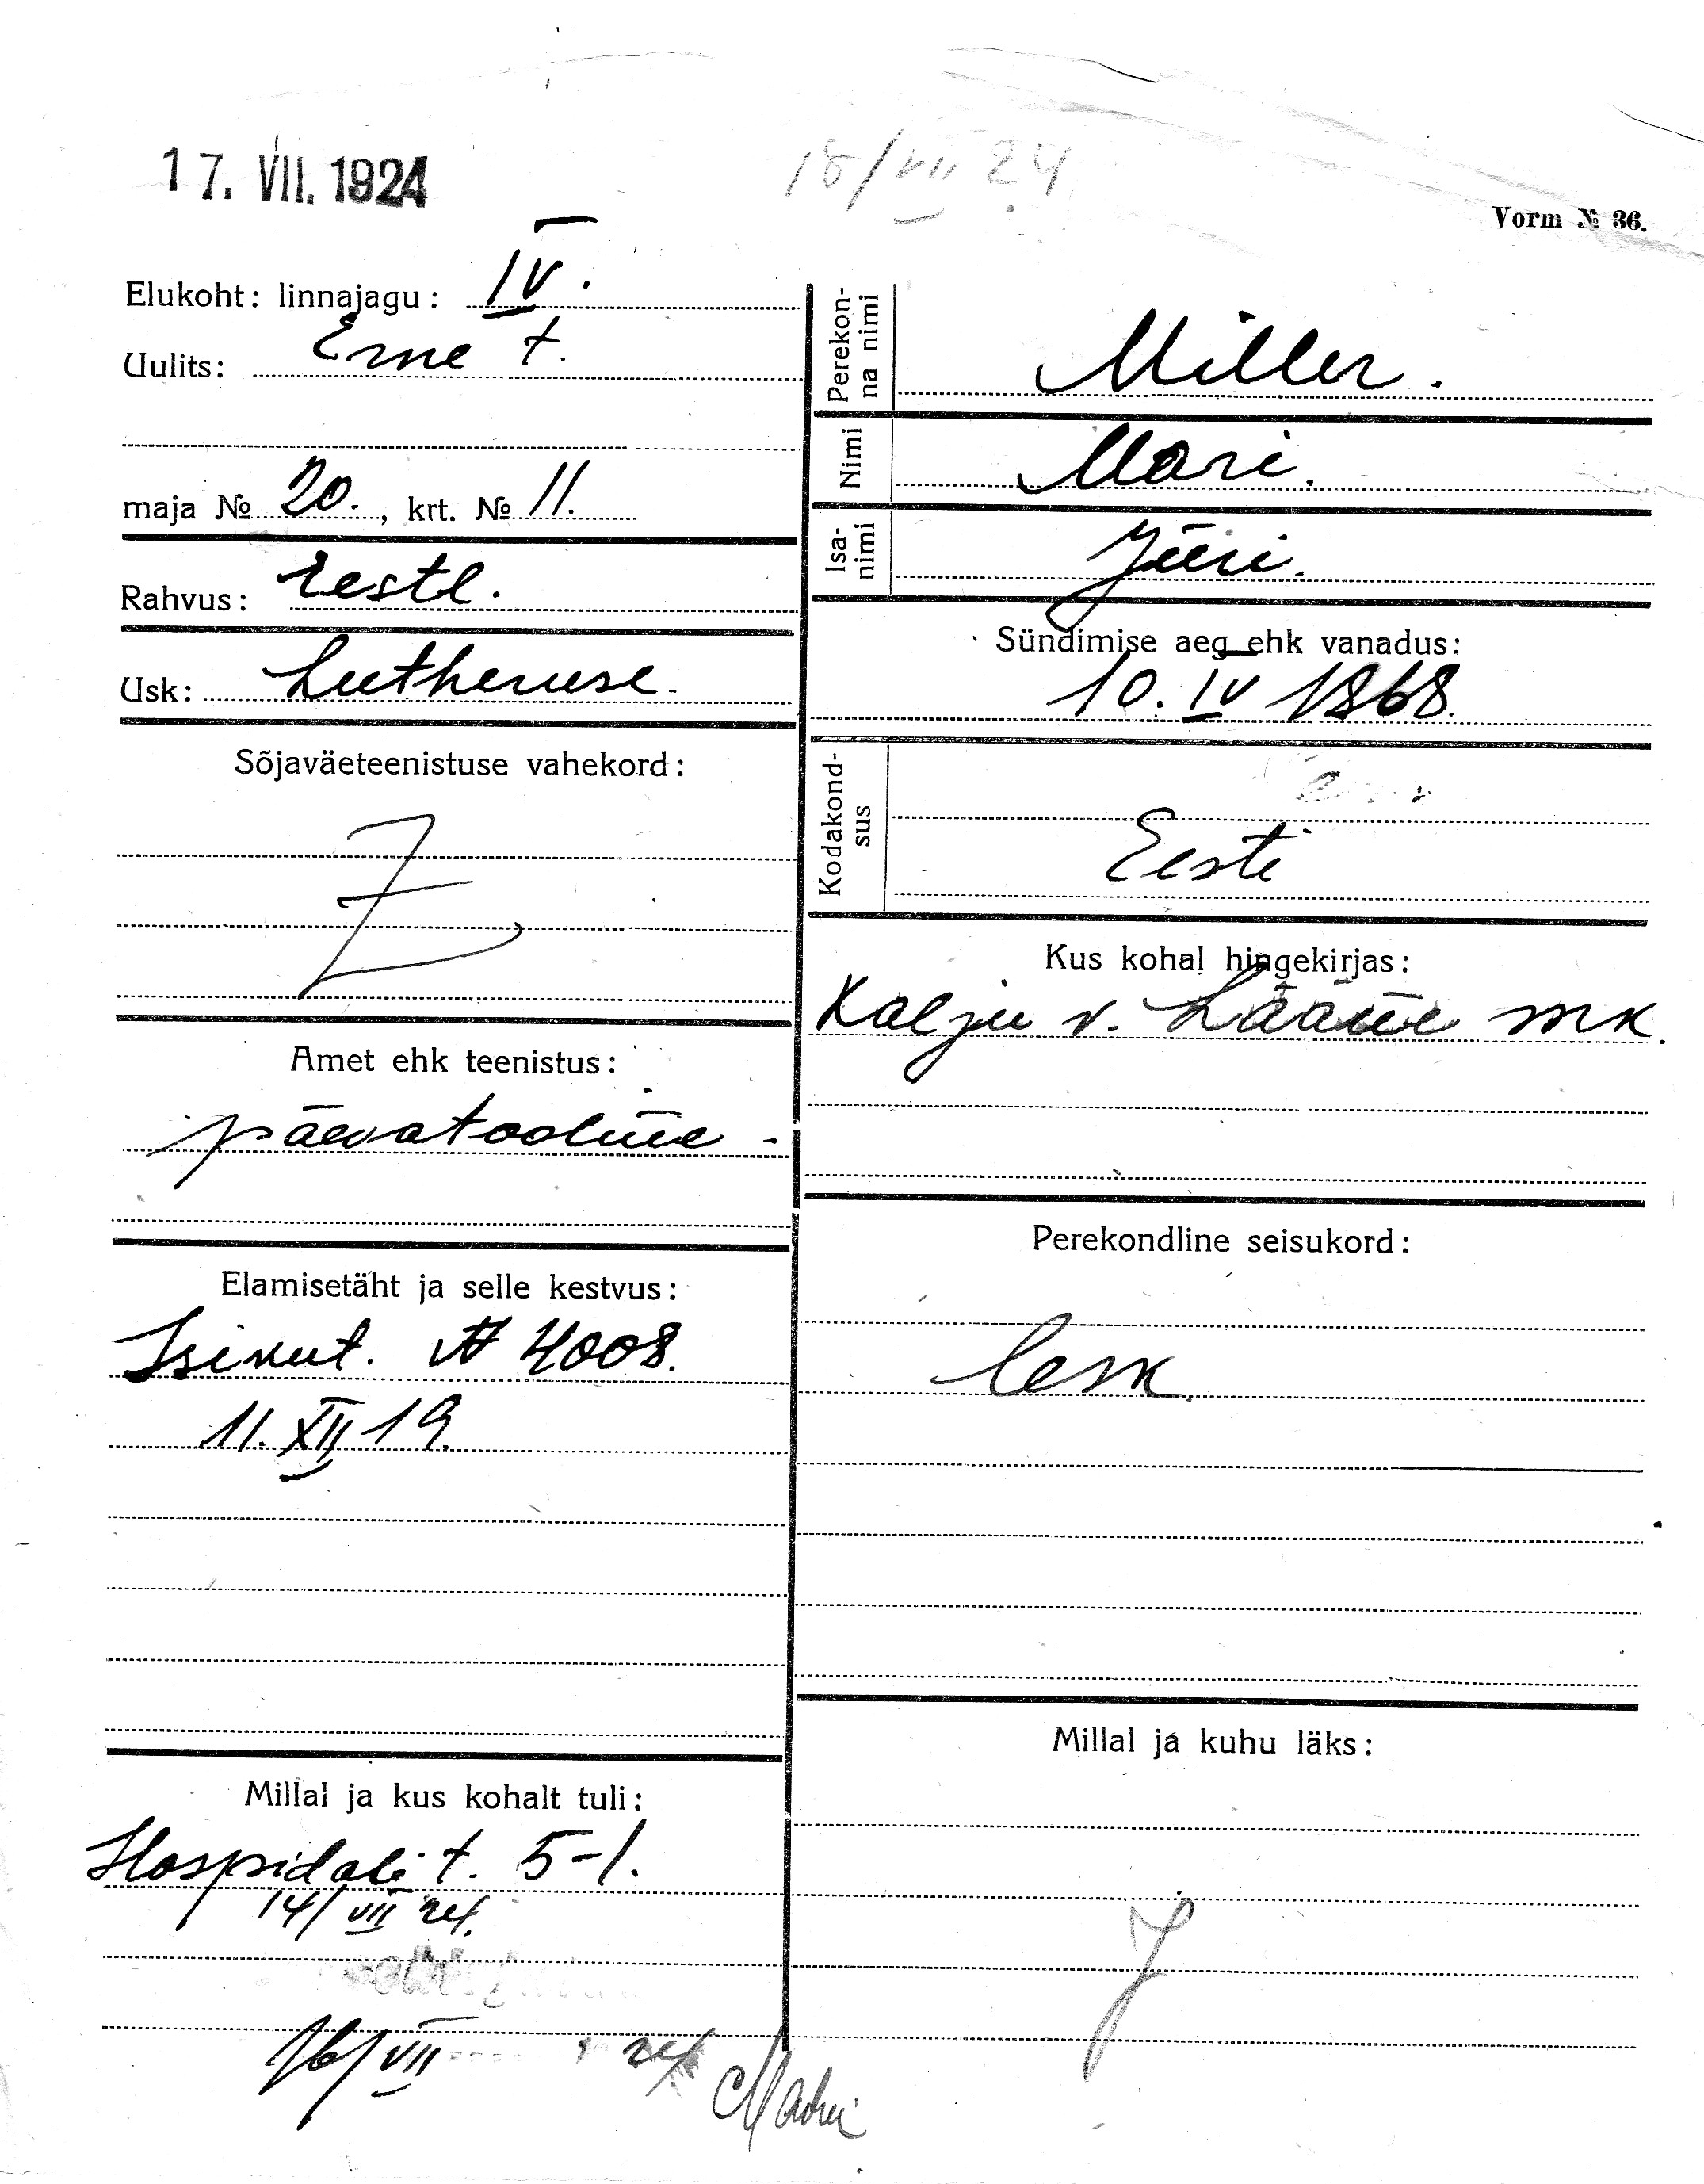 17. VII. 1924
18/VII 24
Vorm № 36.
Elukoht: linnajagu: IV.
Uulits: Erne t.
maja № 20., krt. № 11.
Rahvus: eestl.
Usk: Lutheruse.
Sõjaväeteenistuse vahekord:
Amet ehk teenistus:
päevatooline
Elamisetäht ja selle kestvus:
Isikut. № 4008.
11. XII 19.
Millal ja kus kohalt tuli:
Hospidali t. 5-1.
14/VII 24.
16/VII 24
Perekon-
na nimi
Miller.
Nimi
Mari.
Isa-
nimi
Jüri.
Sündimise aeg ehk vanadus:
10. IV 1868.
Kodakond-
sus
Eesti
Kus kohal hingekirjas:
Kalju v. Lääne mk.
Perekondline seisukord:
lesk.
Millal ja kuhu läks: